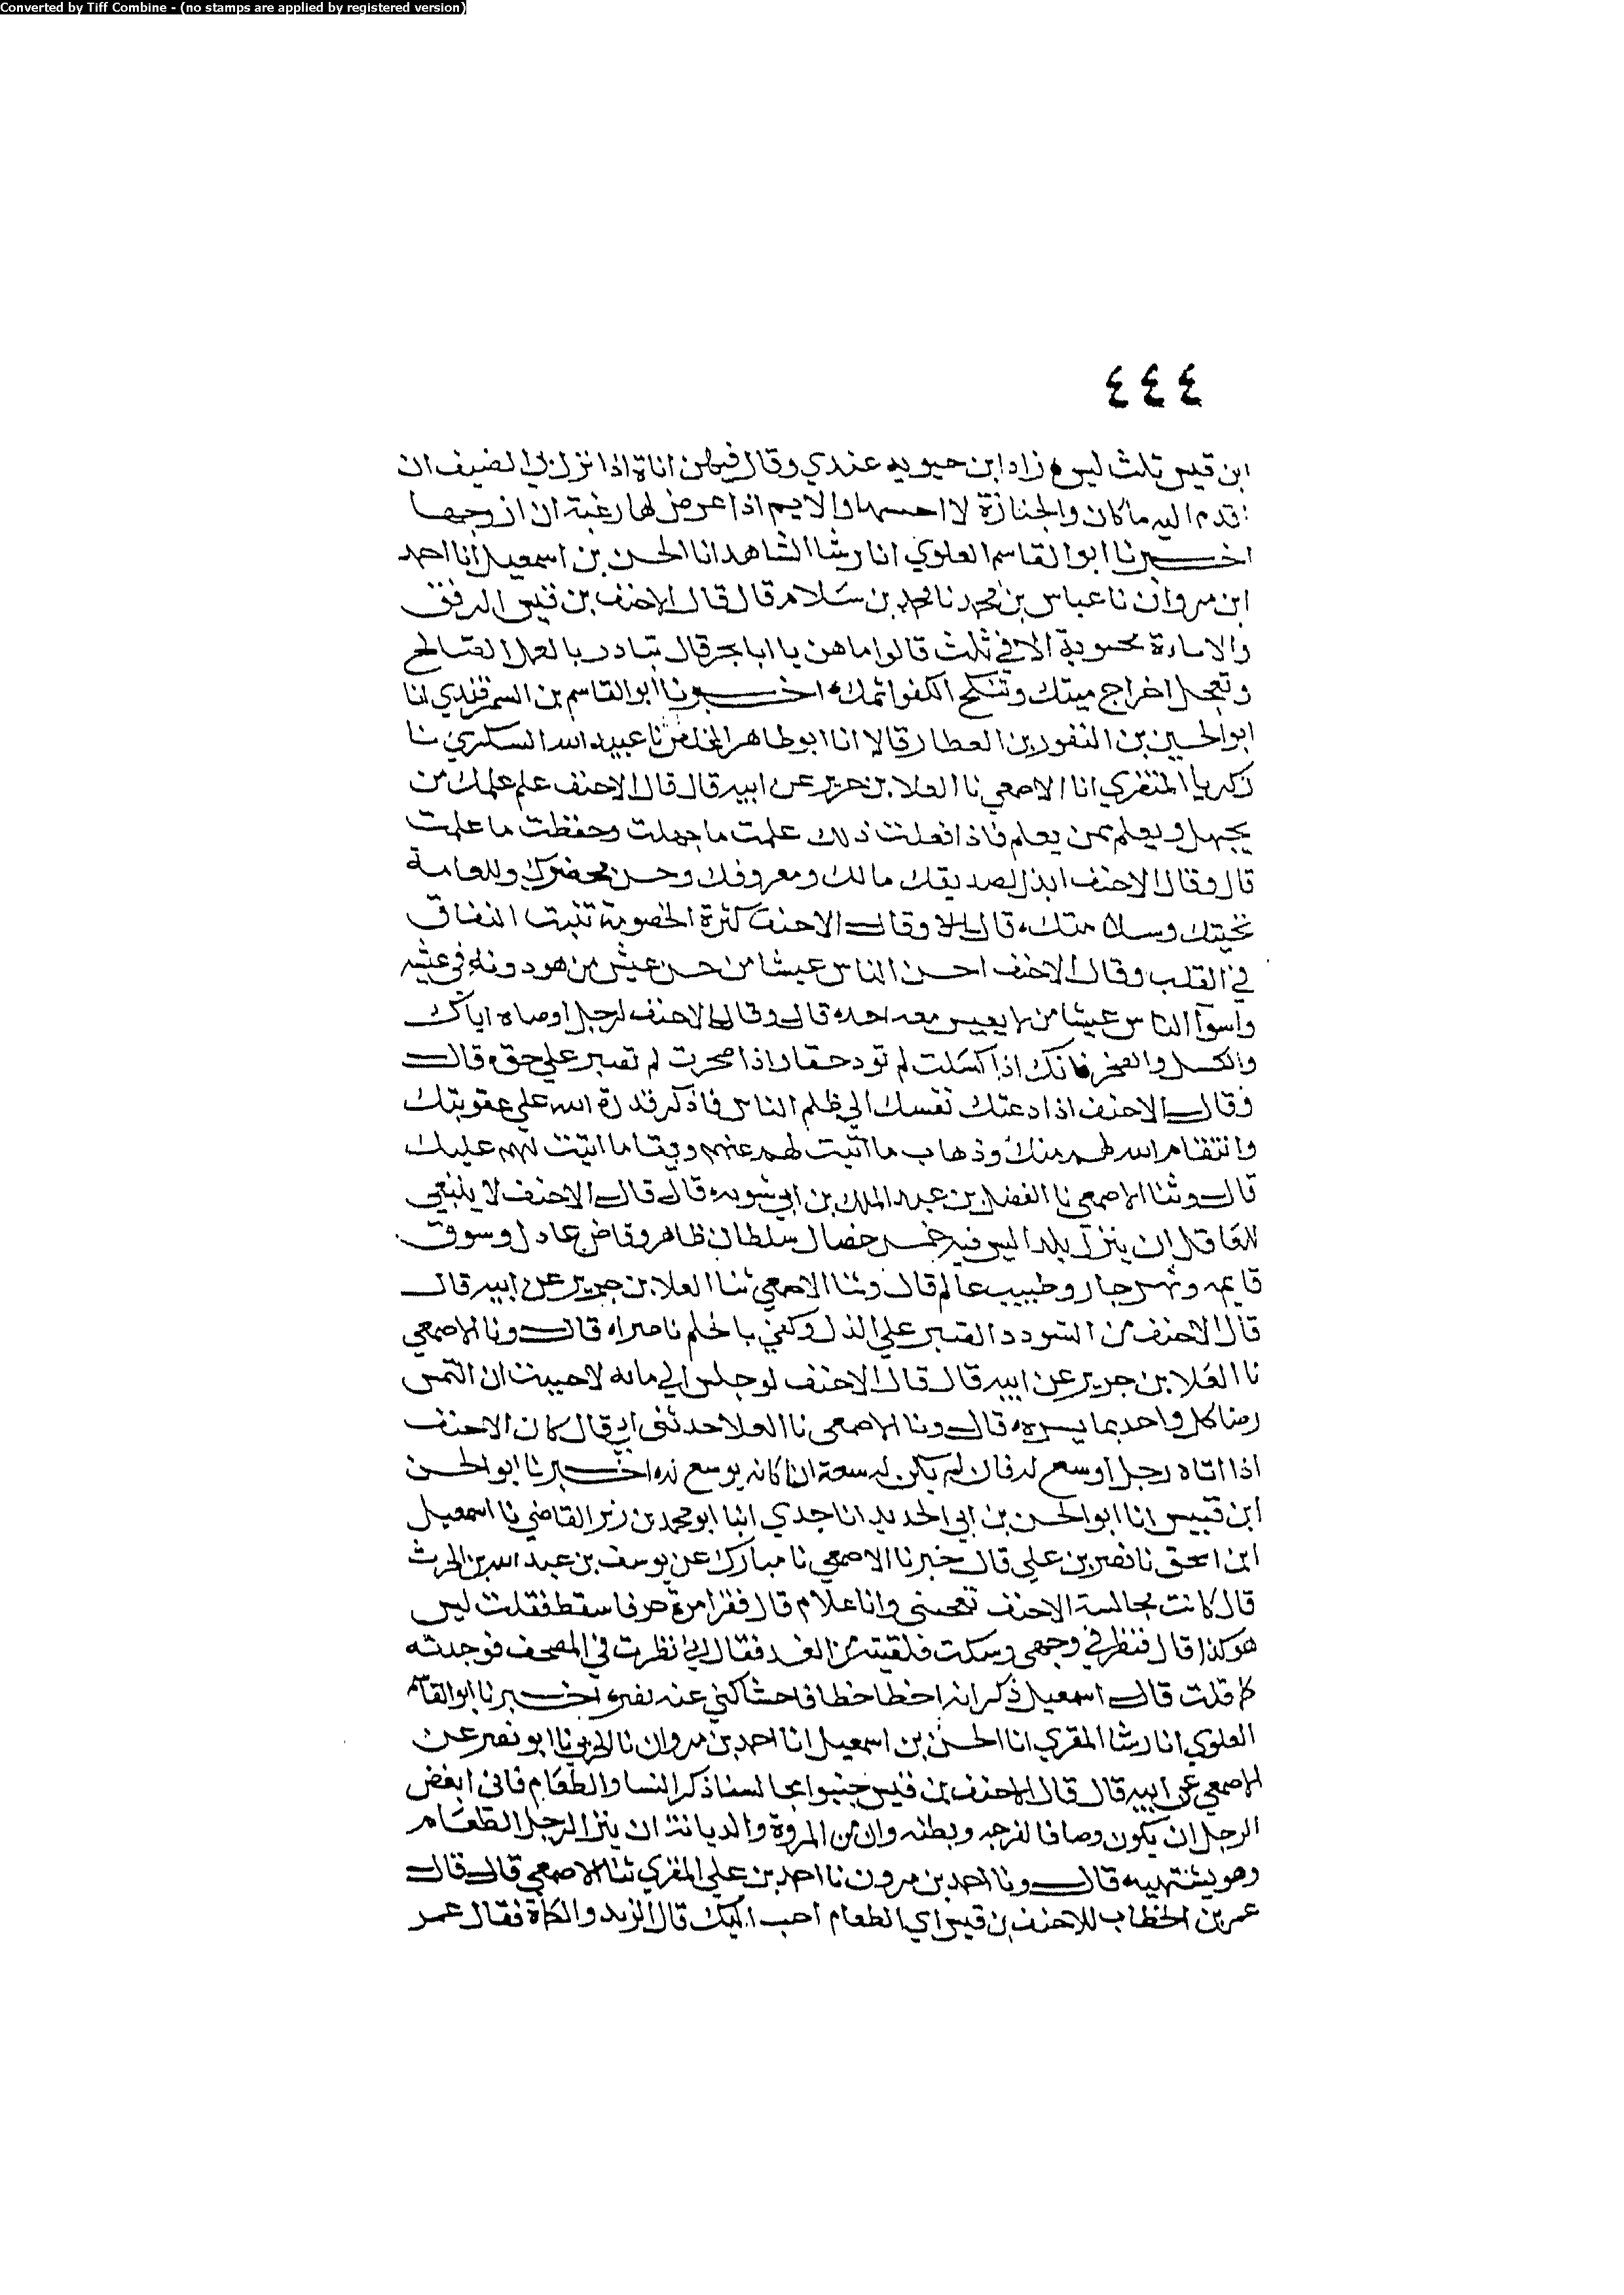 Converted by Tiff Combine - (no stamps are applied by registered version)
٤٤٤
ابن قيس ثلث ليس زاد ابن حيويه عندي وقال فيهن اناة اذا نزل بي الضيف ان
اقدم اليه ما كان والجنازة لا احبسها والايم اذا عرض لها رغبة ان ازوجها
اخبرنا ابو القاسم العلوي انا رشا الشاهد انا الحسن بن اسمعيل انا احمد
ابن مروان نا عباس بن محمد نا محمد بن سلام قال قال الاحنف بن قيس الرفق
والاناة محبوبة الا في ثلث قالوا ما هن يا ابا بحر قال تبادر بالعمل الصالح
وتعجل اخراج ميتك وتنكح الكفو ايمك اخبرنا ابو القاسم بن السمرقندي انا
ابو الحسين بن النقور بن العطار قالا انا ابو طاهر المخلص نا عبيد الله السكري نا
زكريا المنقري انا الاصمعي نا العلا بن حرير عن ابيه قال قال الاحنف علم علمك من
يجهل ويعلم ممن يعلم فاذا فعلت ذلك علمت ما جهلت وحفظت ما علمت
قال وقال الاحنف ابذل لصديقك مالك ومعروفك وحسن محضرك وللعامة
تحيتك وسلامتك قال وقال الاحنف كثرة الخصومة تنبت النفاق
في القلب وقال الاحنف احسن الناس عيشا من حسن عيش من هو دونه في عيشه
واسوأ الناس عيشا من لا يعيش معه احد قال وقال الاحنف لرجل اوصاه اياك
والكسل والضجر فانك اذا كسلت لم تود حقا واذا ضجرت لم تصبر علي حق قال
وقال الاحنف اذا دعتك نفسك الي ظلم الناس فاذكر قدرة الله علي عقوبتك
وانتقام الله لهم منك وذهاب ما اتيت لهم عنهم وبقا ما اتيت لهم عليك
قال وثنا الاصمعي نا الفضل بن عبد الملك بن ابي شوبه قال قال الاحنف لا ينبغي
للعاقل ان ينزل بلدا ليس فيه خمس خصال سلطان ظاهر وقاض عادل وسوق
قايمه ونهر جار وطبيب عالم قال وثنا الاصمعي ثنا العلا بن جرير عن ابيه قال
قال الاحنف من السودد الصبر علي الذل وكفي بالحلم ناصرا قال ونا الاصمعي
نا العلا بن جرير عن ابيه قال قال الاحنف لو جلس الي مائه لاحببت ان التمس
رضا كل واحد بما يسره قال ونا الاصمعي نا العلا حدثني ابي قال كان الاحنف
اذا اتاه رجل اوسع له فان لم يكن له سعة انا كانه يوسع له اخبرنا ابو الحسن
ابن قبيس انا ابو الحسن بن ابي الحديد انا جدي ابنا ابو محمد بن زبر القاضي نا اسمعيل
ابن اسحق نا نصر بن علي قال خبرنا الاصمعي نا مبارك عن يوسف بن عبد الله بن الحرث
قال كانت مجالسة الاحنف تعجبني وانا غلام قال فقرا مرة حرفا سقط فقلت ليس
هو كذا قال فنظر في وجهي وسكت فلقيته من الغد فقال لي نظرت في المصحف فوجدته
كما قلت قال اسمعيل ذكر انه اخطا خطا فاحشا كني عنه نصر اخبرنا ابو القاسم
العلوي انا رشا المقري انا الحسن بن اسمعيل انا احمد بن مروان نا الحربي نا ابو نصر عن
الاصمعي عن ابيه قال قال الاحنف بن قيس جنبوا مجالسنا ذكر النسا والطعام فاني ابغض
الرجل ان يكون وصافا لفرجه وبطنه وان من المروة والديانة ان يترك الرجل الطعام
وهو يشتهيه قال ونا احمد بن مرون نا احمد بن علي المقري ثنا الاصمعي قال قال
عمر بن الخطاب للاحنف بن قيس اي الطعام احب اليك قال الزبد والكمأة فقال عمر